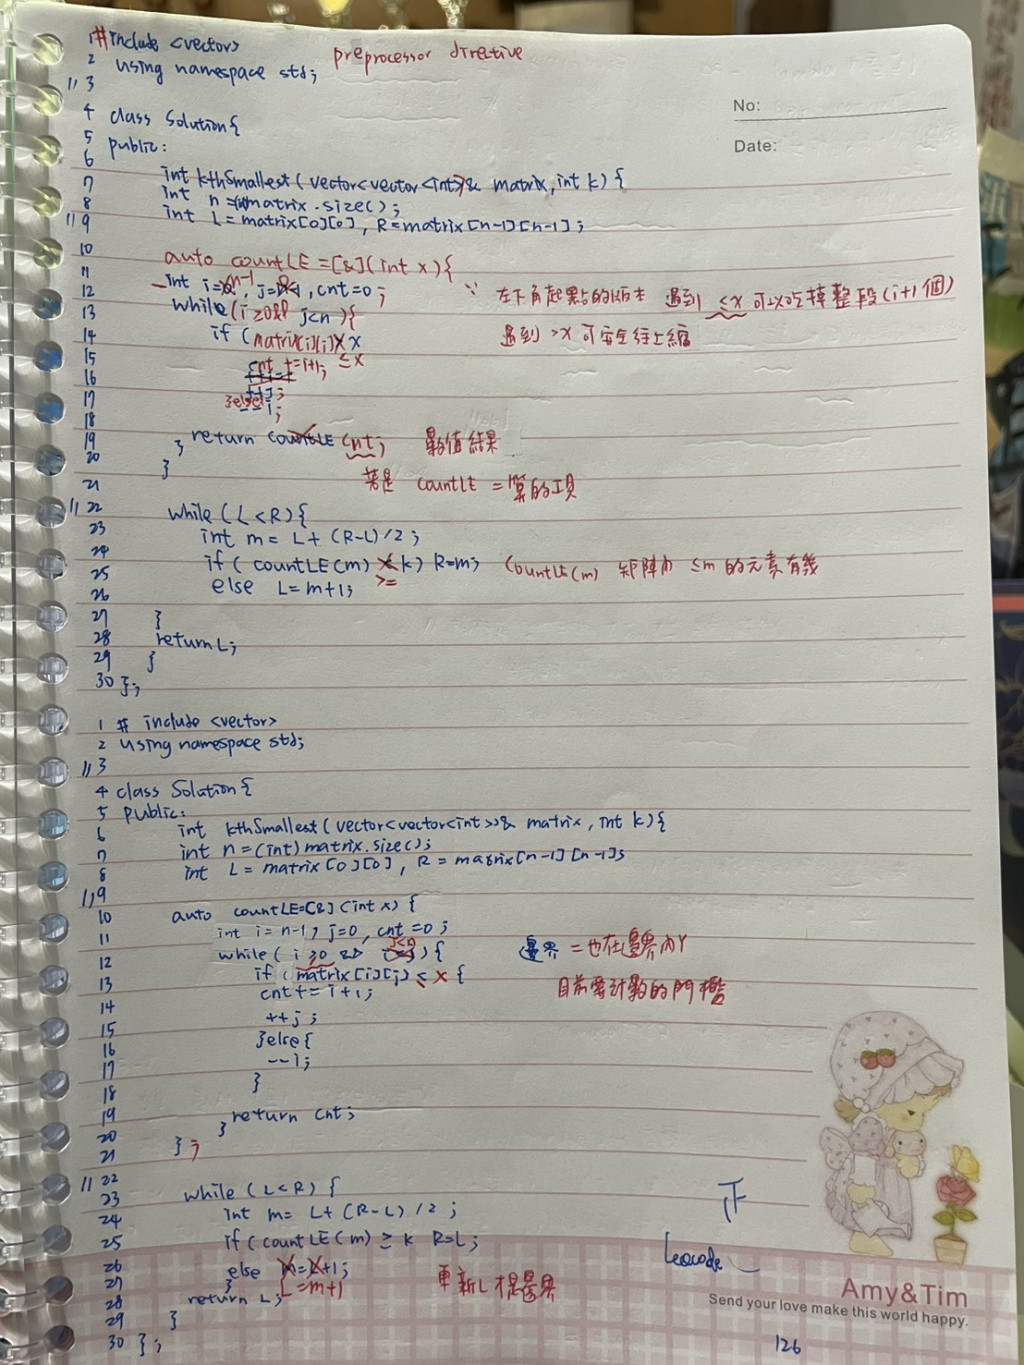 1 #include <vector> preprocessor directive
2 using namespace std;
// 3
No:
4 class Solution{
Date:
5 public:
6
7 int kthSmallest (vector<vector<int>>& matrix, int k) {
8 int n = matrix.size();
// 9 int L = matrix[0][0], R = matrix[n-1][n-1];
10 auto countLE = [&](int x){
11 int i = n-1, j = 0, cnt = 0; ∵ 左下角起點的版本 遇到 ≤x 可以吃掉整段(i+1個)
12 while (i≥0 && j<n){
13 if (matrix[i][j] ≤ x 遇到 >x 可安全往上縮
14
15 cnt += i+1;
16 ++j;
17 }else{
18 --i;
19 } return cnt; 數值結果
20 }
21 若是 countLE = 算的工具
// 22 while (L<R){
23 int m = L + (R-L)/2;
24 if (countLE(m) >= k) R=m; countLE(m) 矩陣內 ≤m 的元素有幾
25 else L=m+1;
26
27 }
28 return L;
29 }
30 };
1 # include <vector>
2 using namespace std;
// 3
4 class Solution{
5 public:
6 int kthSmallest (vector<vector<int>>& matrix, int k){
7 int n = (int) matrix.size();
8 int L = matrix[0][0], R = matrix[n-1][n-1];
// 9
10 auto countLE=[&](int x) {
11 int i = n-1, j=0, cnt=0;
12 while ( i ≥0 && j<n ) { 邊界 = 也在邊界內
13 if (matrix[i][j] ≤ x {
14 cnt += i+1; 目前要計數的門檻
15 ++j;
16 }else{
17 --i;
18 }
19 return cnt;
20 }
21 };
// 22
23 while (L<R) {
24 int m= L+(R-L) /2;
25 if (countLE(m) ≥ k R=L;
26 else m=L+1;
27 } L=m+1 更新L 根邊界
28 return L;
29 }
30 };
正
Leocode
Amy&Tim
Send your love make this world happy.
126